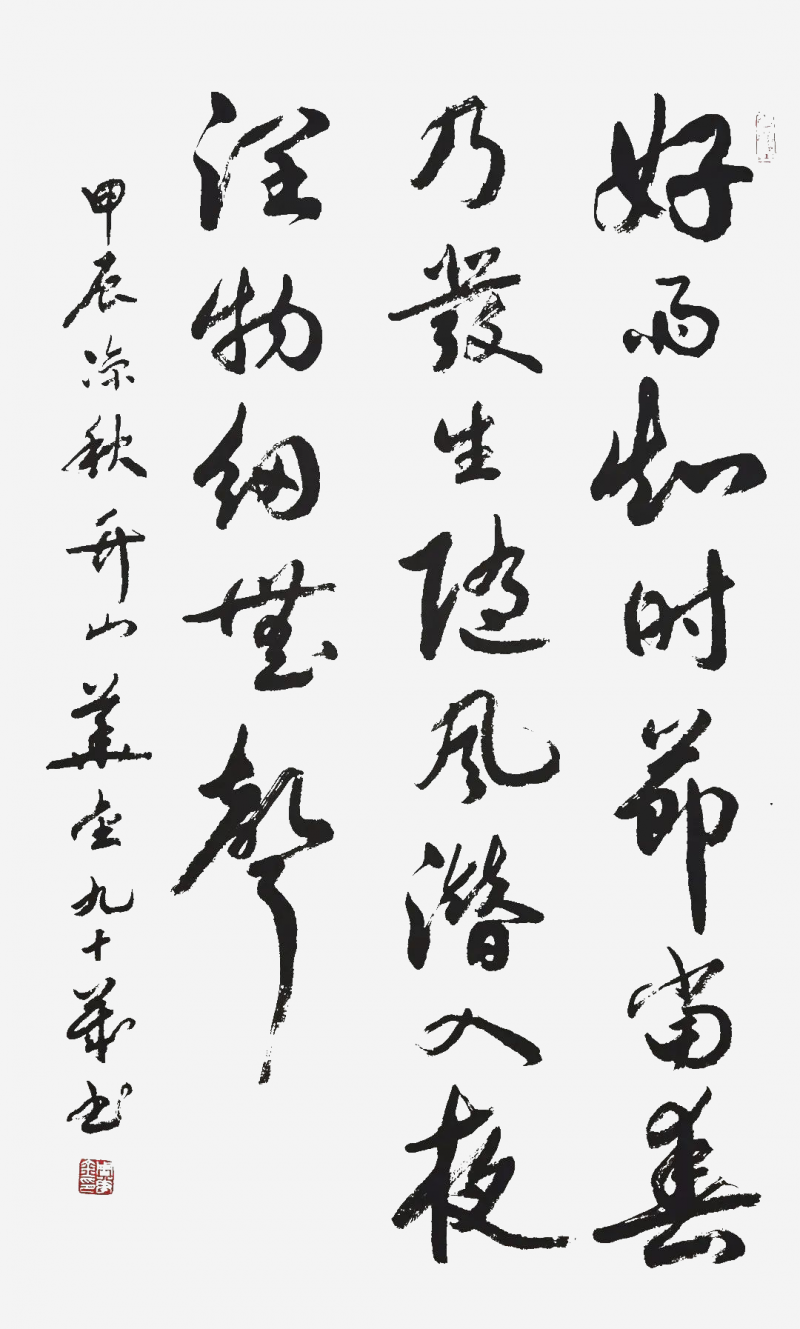 好雨知时節當春
乃發生隨風潛入夜
潤物細無聲
甲辰凉秋舟山華金九十歲书